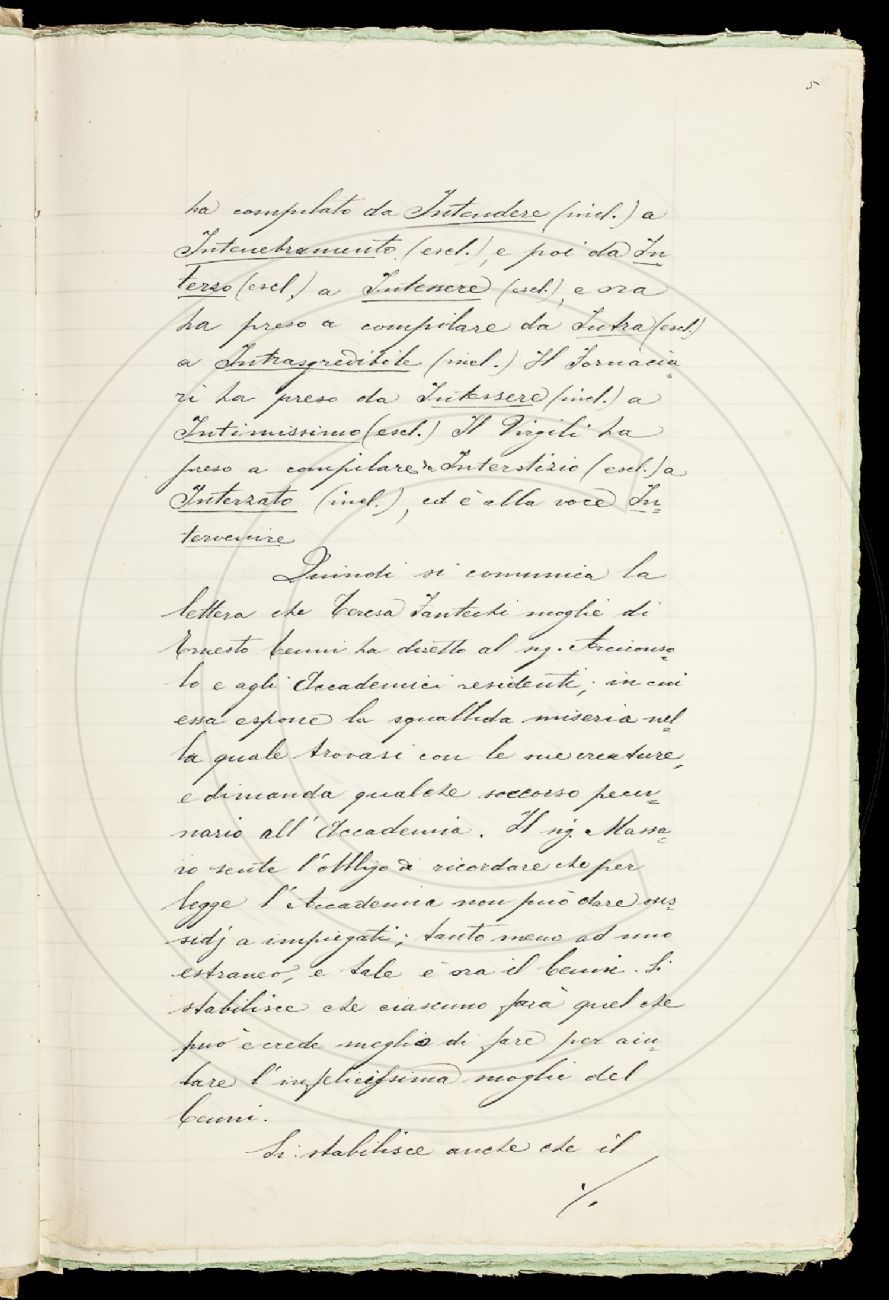 5
ha compilato da Intendere (incl.) a
Intenebramento (escl.), e poi da In
terzo (escl.) a Intessere (escl.), e ora
ha preso a compilare da Intra (escl.)
a Intrasgredibile (incl.) Il Fornacia=
ri ha preso da Intessere (incl.) a
Intimissimo (escl.) Il Virgili ha
preso a compilare da Interstizio (escl.) a
Interzato (incl.), ed è alla voce In=
tervenire
Quindi si comunica la
lettera che Teresa Fantechi moglie di
Ernesto Cenni ha diretto al sig. Arciconso=
lo e agli Accademici residenti; in cui
essa espone la squallida miseria nel=
la quale trovasi con le sue creature,
e dimanda qualche soccorso pecu=
nario all'Accademia. Il sig. Massa=
io sente l'obbligo di ricordare che per
legge l'Accademia non può dare sus=
sidj a impiegati; tanto meno ad uno
estraneo, e tale è ora il Cenni. Si
stabilisce che ciascuno farà quel che
può e crede meglio di fare per aiu=
tare l'infelicissima moglie del
Cenni.
Si stabilisce anche che il
./.